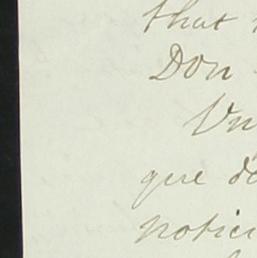 that
Don
Un
que de
notici